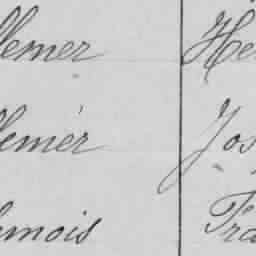 lemer He
lemér Jos
mois Fra